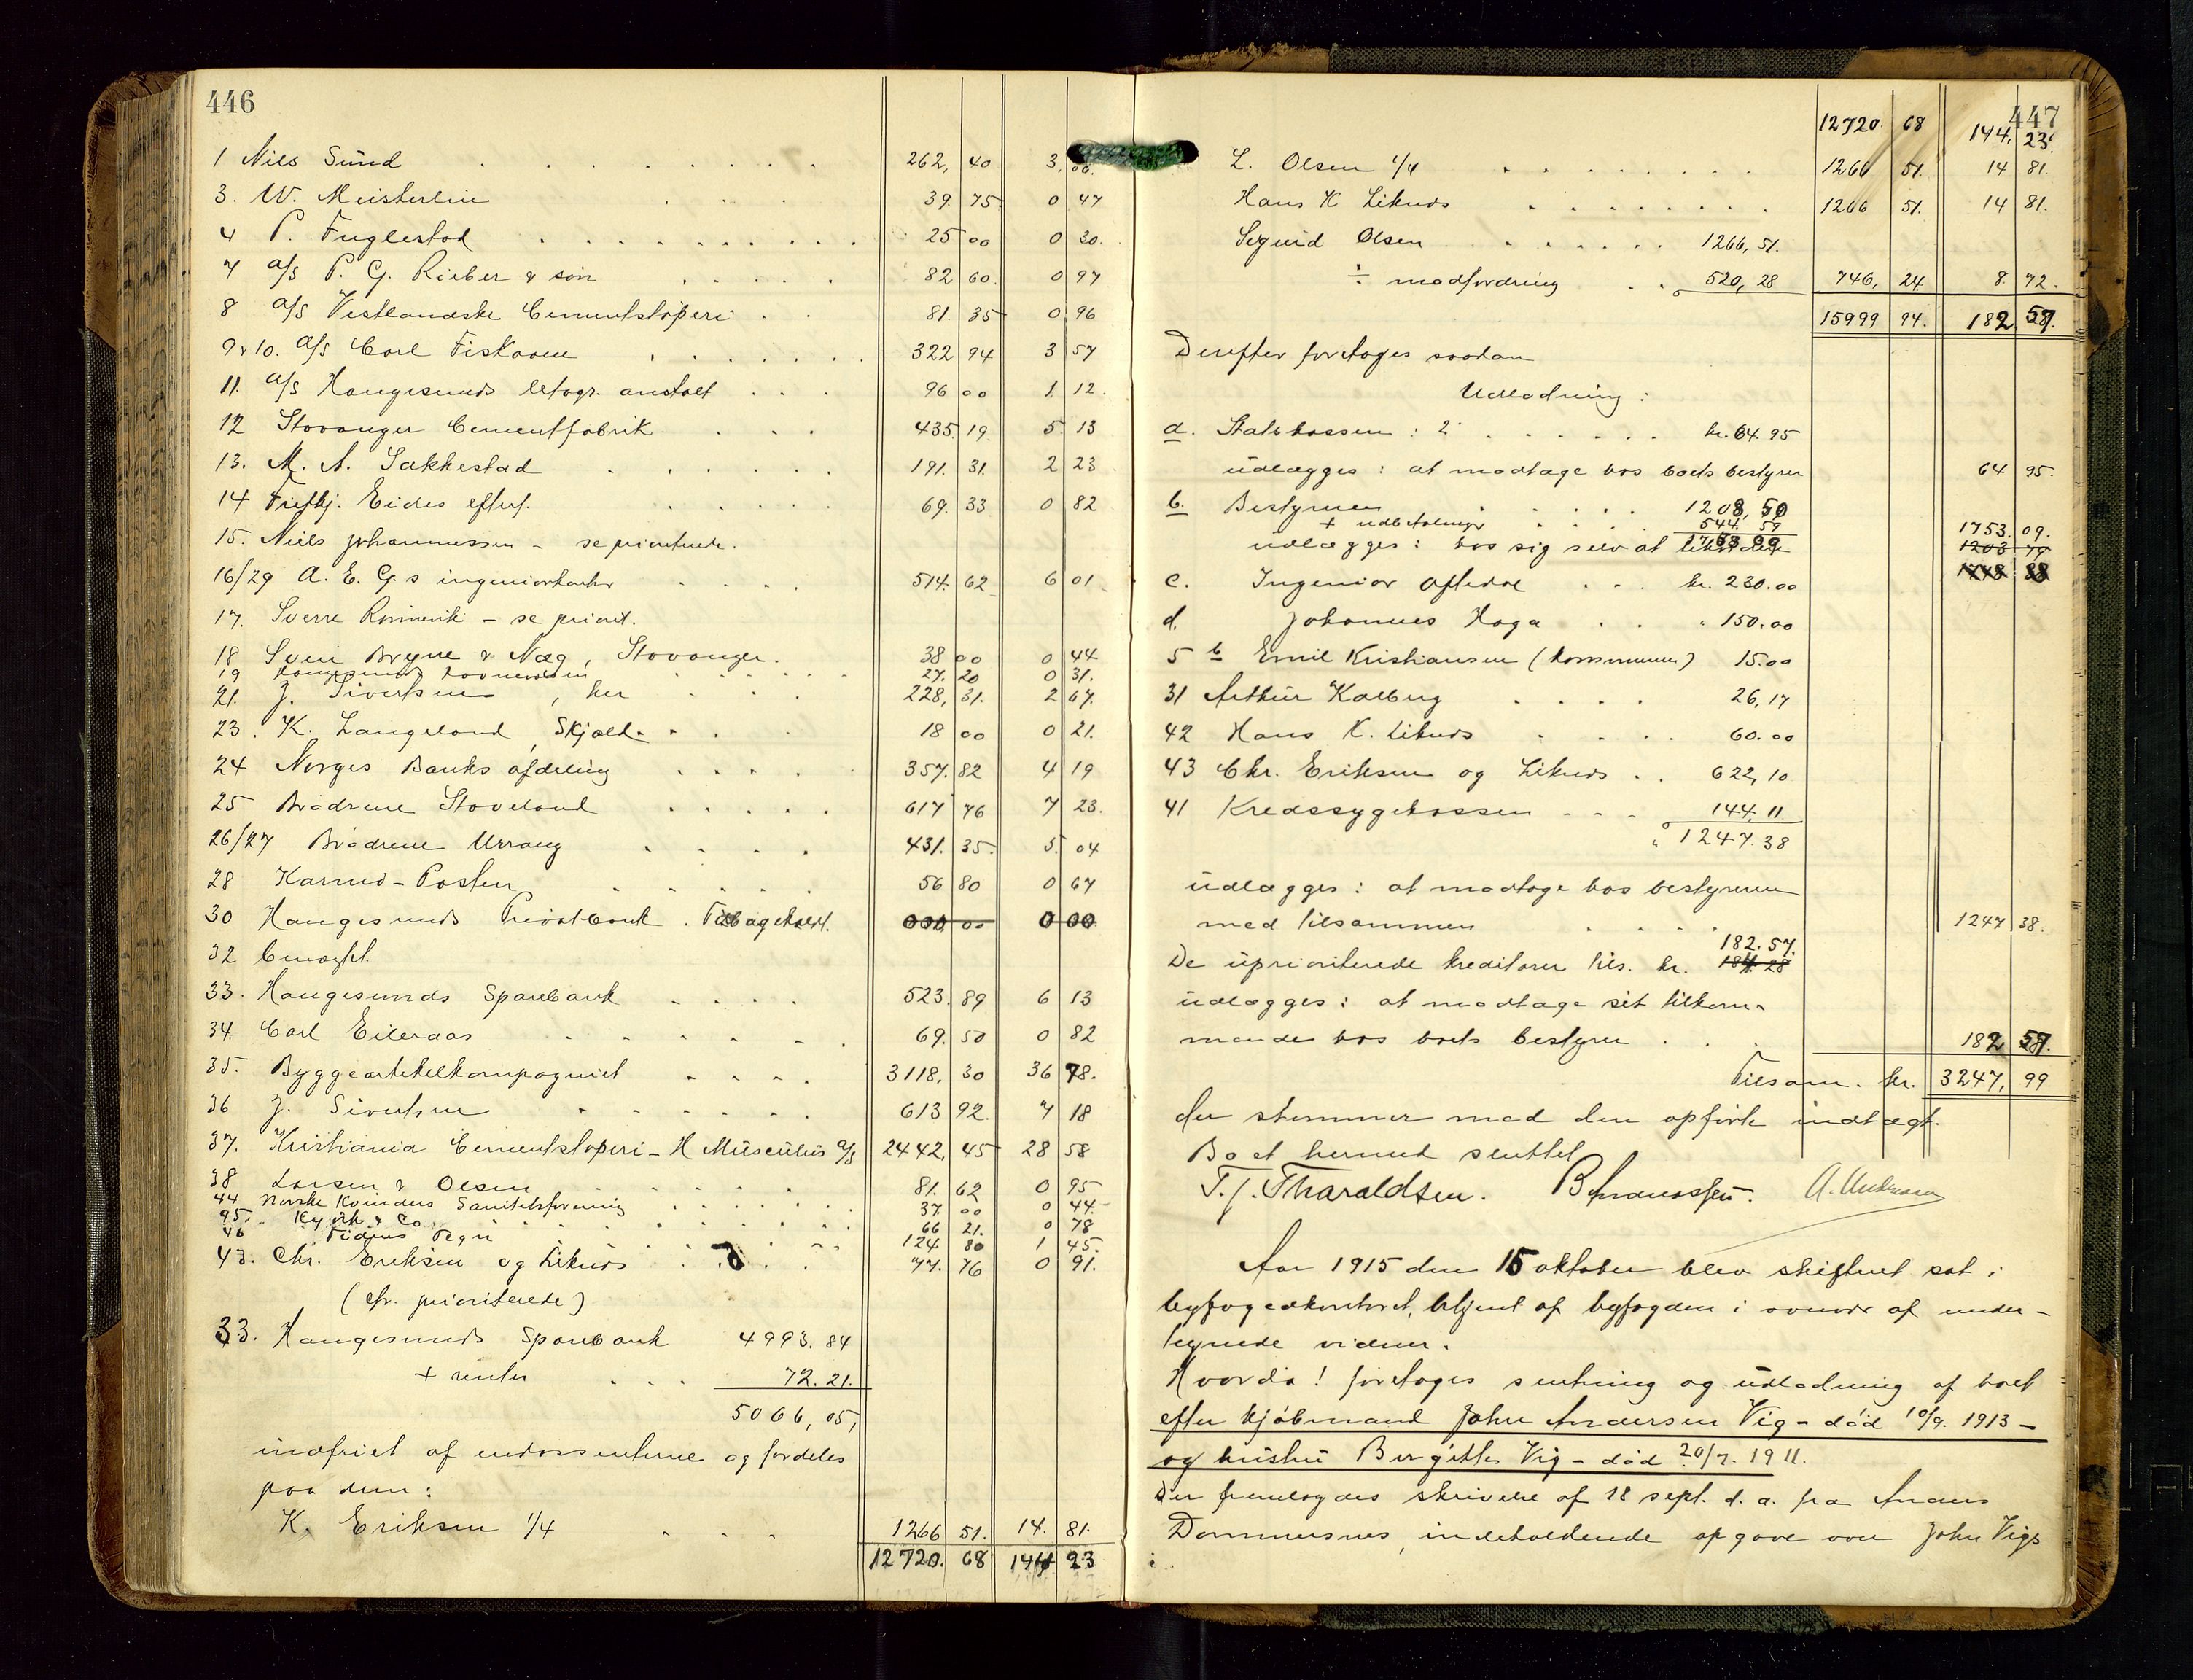 446
1 Niels Sund . . . . . . . . . 262, 40 3, 06.
3. W. Meisterlin . . . 39. 75 0 47
4 P. Fuglestad . . . . . . . . . 25 00 0 30.
7 a/s P. G. Rieber & søn . . . . . 82 60. 0 97
8 a/s Vestlandske Cementstøperi . . 81. 35 0 96
9 & 10. a/s Carl Fiskaaen . . . . . . 322 94 3 57
11. a/s Haugesunds litogr. anstalt . . . 96 00 1. 12.
12 Stavanger Cementfabrik . . . 435. 19. 5. 13
13. M. A. Sakkestad . . . . . . 191. 31. 2 23
14 Fritjhj. Eides eftf. . . . . . 69. 33 0 82
15. Niels Johannessen - se prioriterede.
16/29 A. E. G.s ingeniørkontor . . . . 514. 62 6 01
17. Sverre - se priorit.
18 Svein Bryne & Næg, Stavanger. 38 00 0 44
19 Haugesunds 27. 20 0 31.
21. J. Sivertsen, her . . . . 228, 31. 2 67.
23. K. Langeland, Skjold . . . . 18 00 0 21.
24 Norges Banks afdeling . . . . 357. 82 4 19
25 Brødrene Stoveland . . . . . 617 76 7 23.
26/27 Brødrene Urrang . . . . 431. 35. 5. 04
28 Karmø-Posten . . . . . 56 80 0 67
30 Haugesunds Privatbank . Tilbagekaldt. 000 00 0 00
32 Emagl.
33. Haugesunds Sparebank . . . . 523. 89 6 13
34. Carl Eileraas . . . . . . 69. 50 0 82
35. Byggeartikelkompagniet . . . . 3118, 30 36 78.
36 J. Sivertsen . . . . . 613 92. 7 18
37. Kristiania Cementstøperi - H Musculus a/s 2442, 45 28 58
38 Larsen & Olsen . . . . . 81. 62 0 95
44 Norske Kvinders Sanitetsforening . . . . . 37. 00 0 44.
45. & Co. . . . . . 66 21. 0 78
46 . . . . . 124 80 1 45.
43. Chr. Eriksen og Liknes . . . . 77. 76 0 91.
(cfr. prioriterede)
33. Haugesunds Sparebank 4993. 84
+ renter . . . 72. 21.
5066, 05,
indfriet af endossenterne og fordeles
paa dem:
K. Eriksen 1/4 . . . 1266 51. 14. 81.
12720. 68 144 23
447
12720. 68 144, 23.
L. Olsen 1/4 . . . . . . . . 1266 51. 14 81.
Hans K Liknes . . . . . . . . 1266 51. 14 81.
Sigurd Olsen . . . . . . 1266, 51.
÷ modfordring . . 520, 28 746, 24 8. 72.
15999 94. 182. 57.
Derefter foretoges saadan
Udlodning:
a. Statskassen : 2 . . . . . . kr. 64. 95
udlægges: at modtage hos boets bestyrer 64 95.
b. Bestyreren . . . . . 1208, 50
+ udbetalinger . . . . 544. 59
udlægges: hos sig selv at 1753. 09.
1203 79
1748 88
c. Ingeniør Aftedal . . . kr. 230.00
d. Johannes Haga . . " 150.00
5 b Emil Kristiansen (kommunen) 15.00
31 Arthur Kalberg . . . . 26,17
42 Hans K. Liknes . . . . 60.00
43 Chr. Eriksen og Liknes . . 622,10
41 Kredssygekassen . . . 144,11
" 1247.38
udlægges: at modtage hos bestyreren
med tilsammen . . . . 1247 38.
182. 57.
De uprioriterede kreditorer tils. kr. 184. 28
udlægges: at modtage sit tilkom-
mende hos boets bestyrer . . . 182 57.
Tilsam. kr. 3247, 99
der stemmer med den opførte indtægt.
Boet hermed sluttet
T. J. Tharaldsen.
Aar 1915 den 15 oktober blev skifteret sat i
byfogedkontoret, betjent af byfogden i overvær af under-
tegnede vidner.
Hvorda! foretoges slutning og udlodning af boet
efter kjøbmand John Andersen Vig - død 10/9. 1913 -
og hustru Bergitte Vig - død 20/7. 1911.
Der fremlagdes skrivelse af 18 sept. d. a. fra Anders
Dommersnes, indeholdende opgave over John Vigs